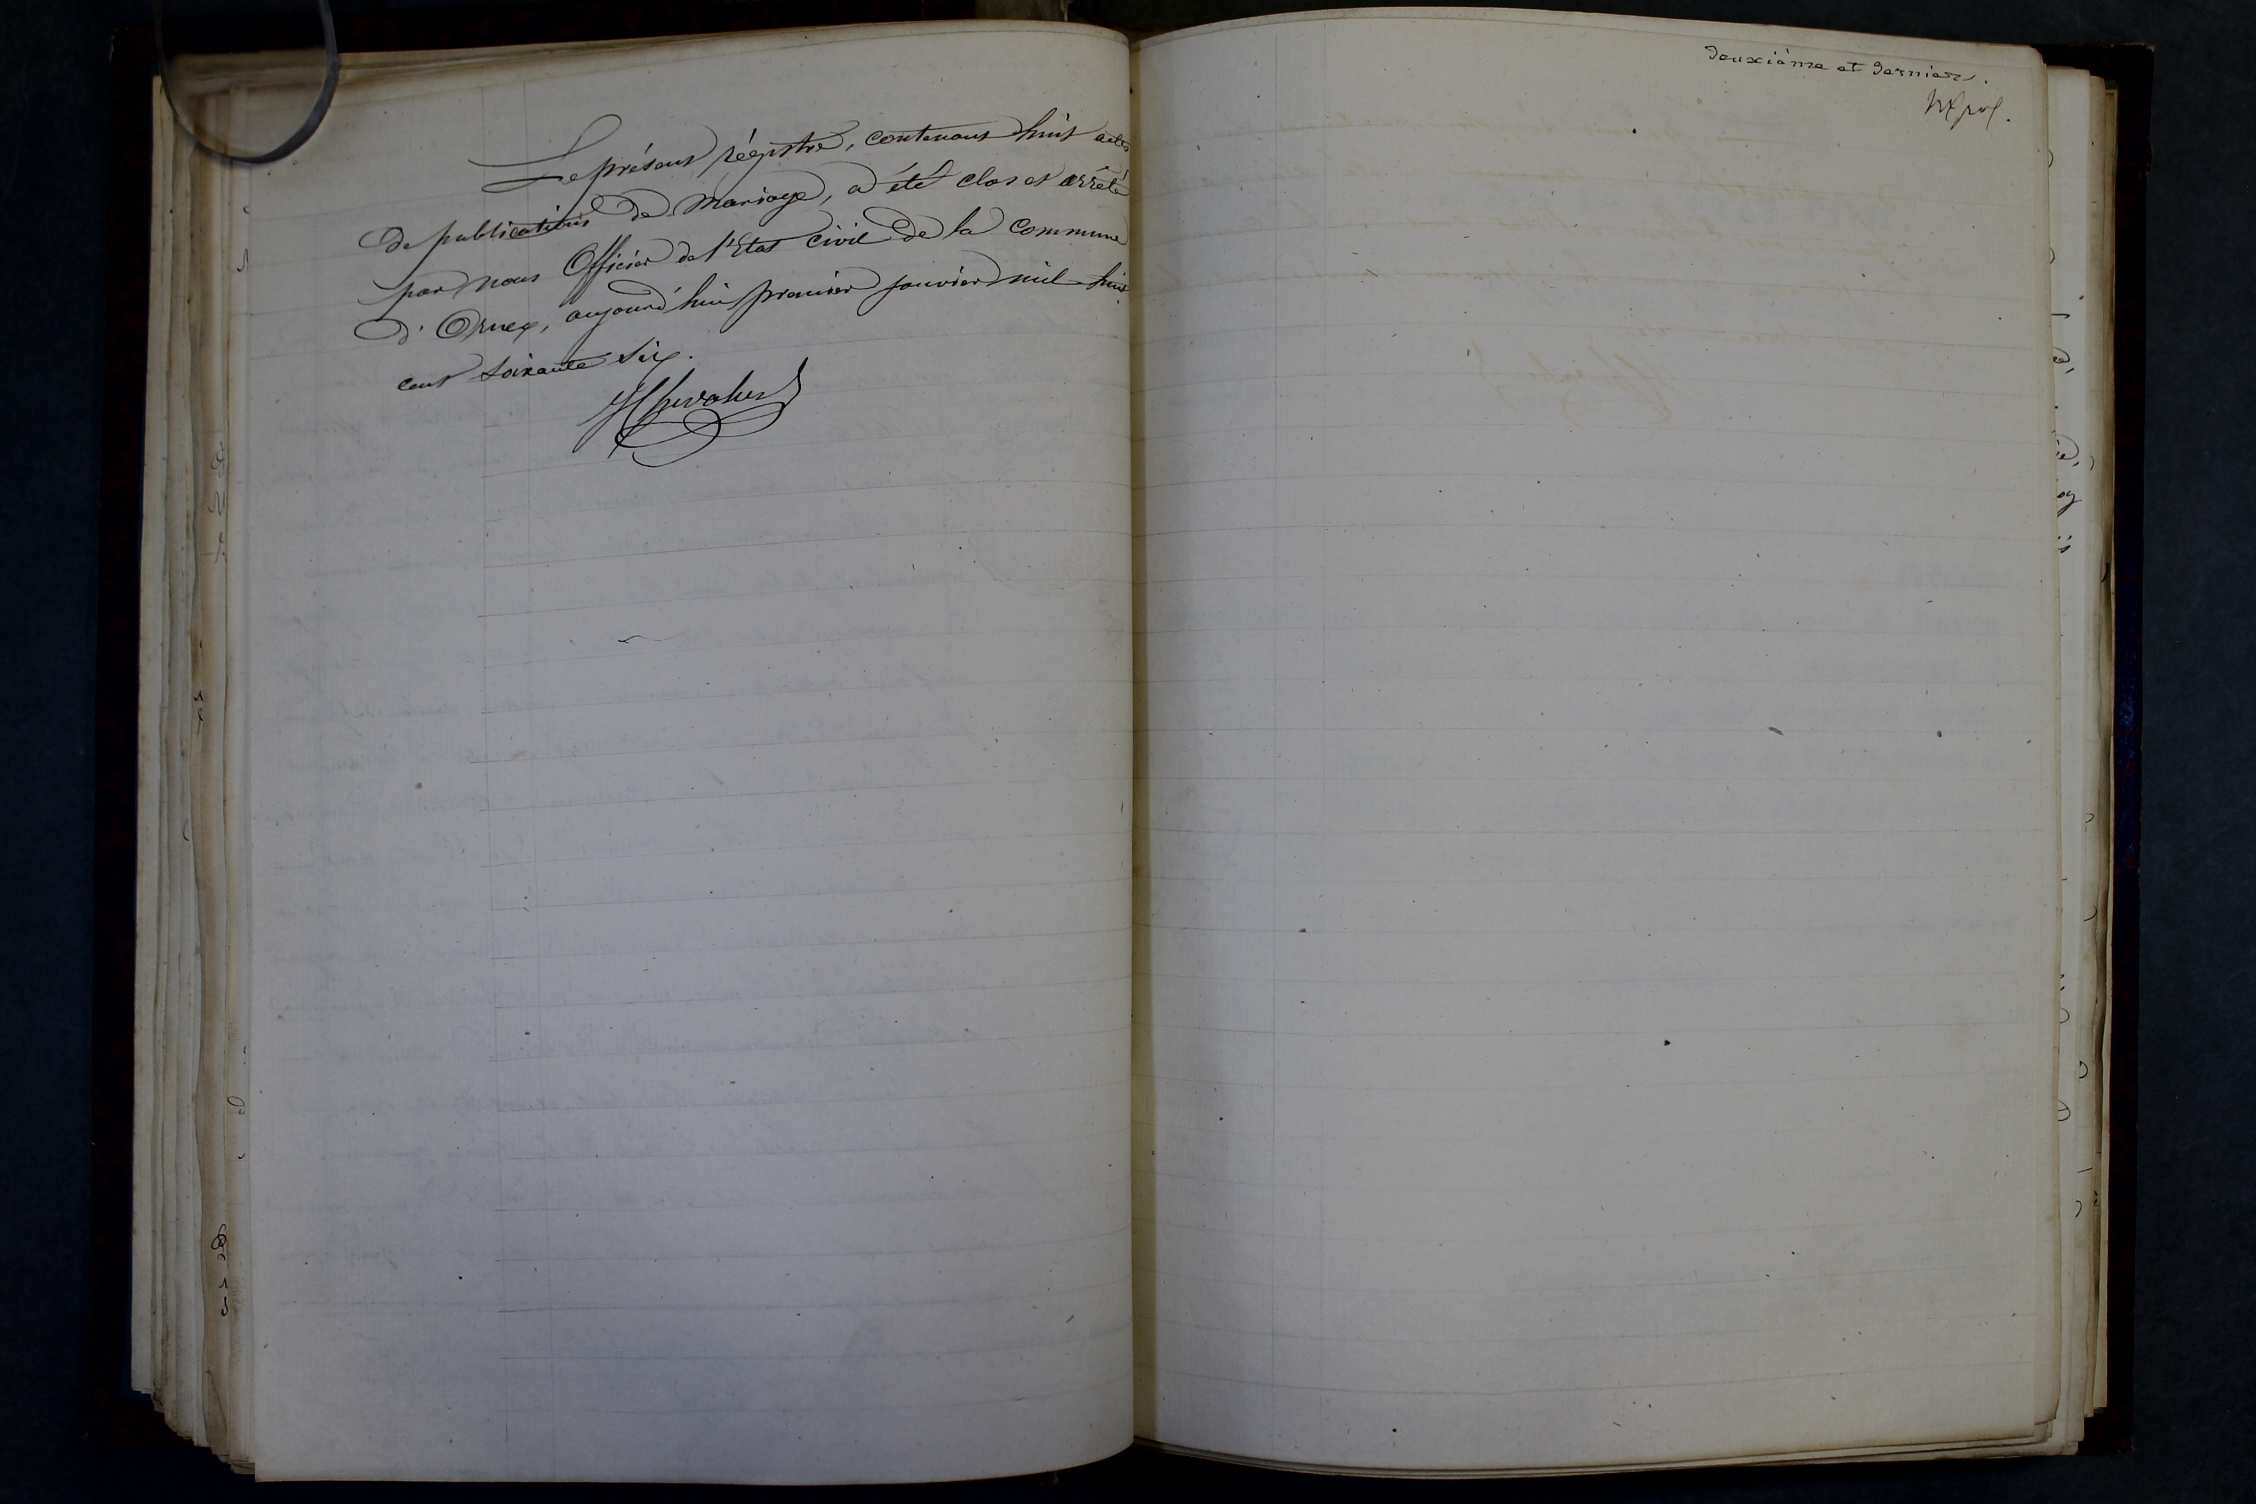 Le présent régistre, contenant huit actes
de publications de Mariage, a été clos et arrêté
par nous Officier de l'Etat civil de la Commune
d'Ornex, aujourd'hui premier janvier mil huit
cent soixante six.
Chevalier
deuxième et dernier.